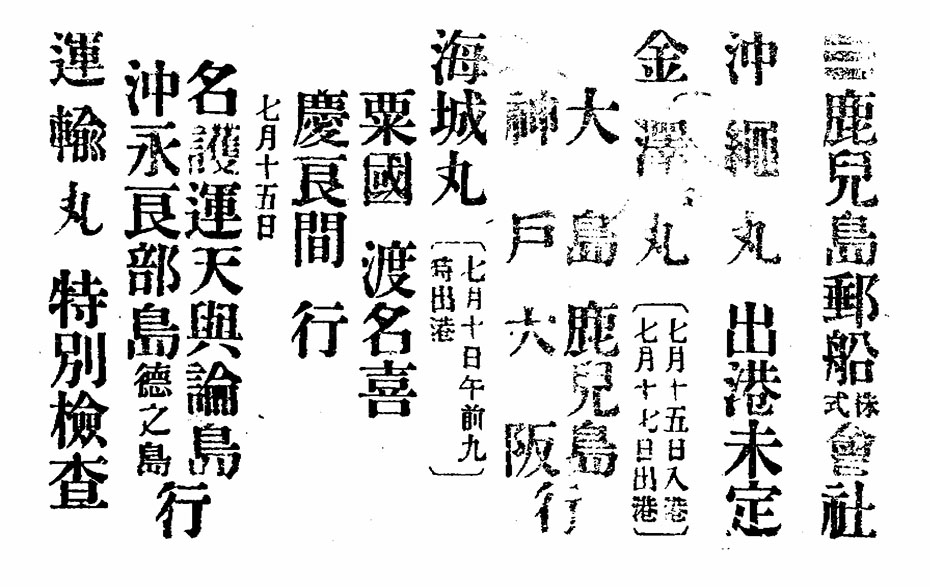 鹿兒島郵船株式會社
沖繩丸 出港未定
金澤丸 七月十五日入港
七月十七日出港
大島 鹿兒島
神戶 大阪行
海城丸 七月十日午前九
時出港
粟國 渡名喜
慶良間 行
七月十五日
名護運天與論島
沖永良部島德之島
行
運輸丸 特別檢查